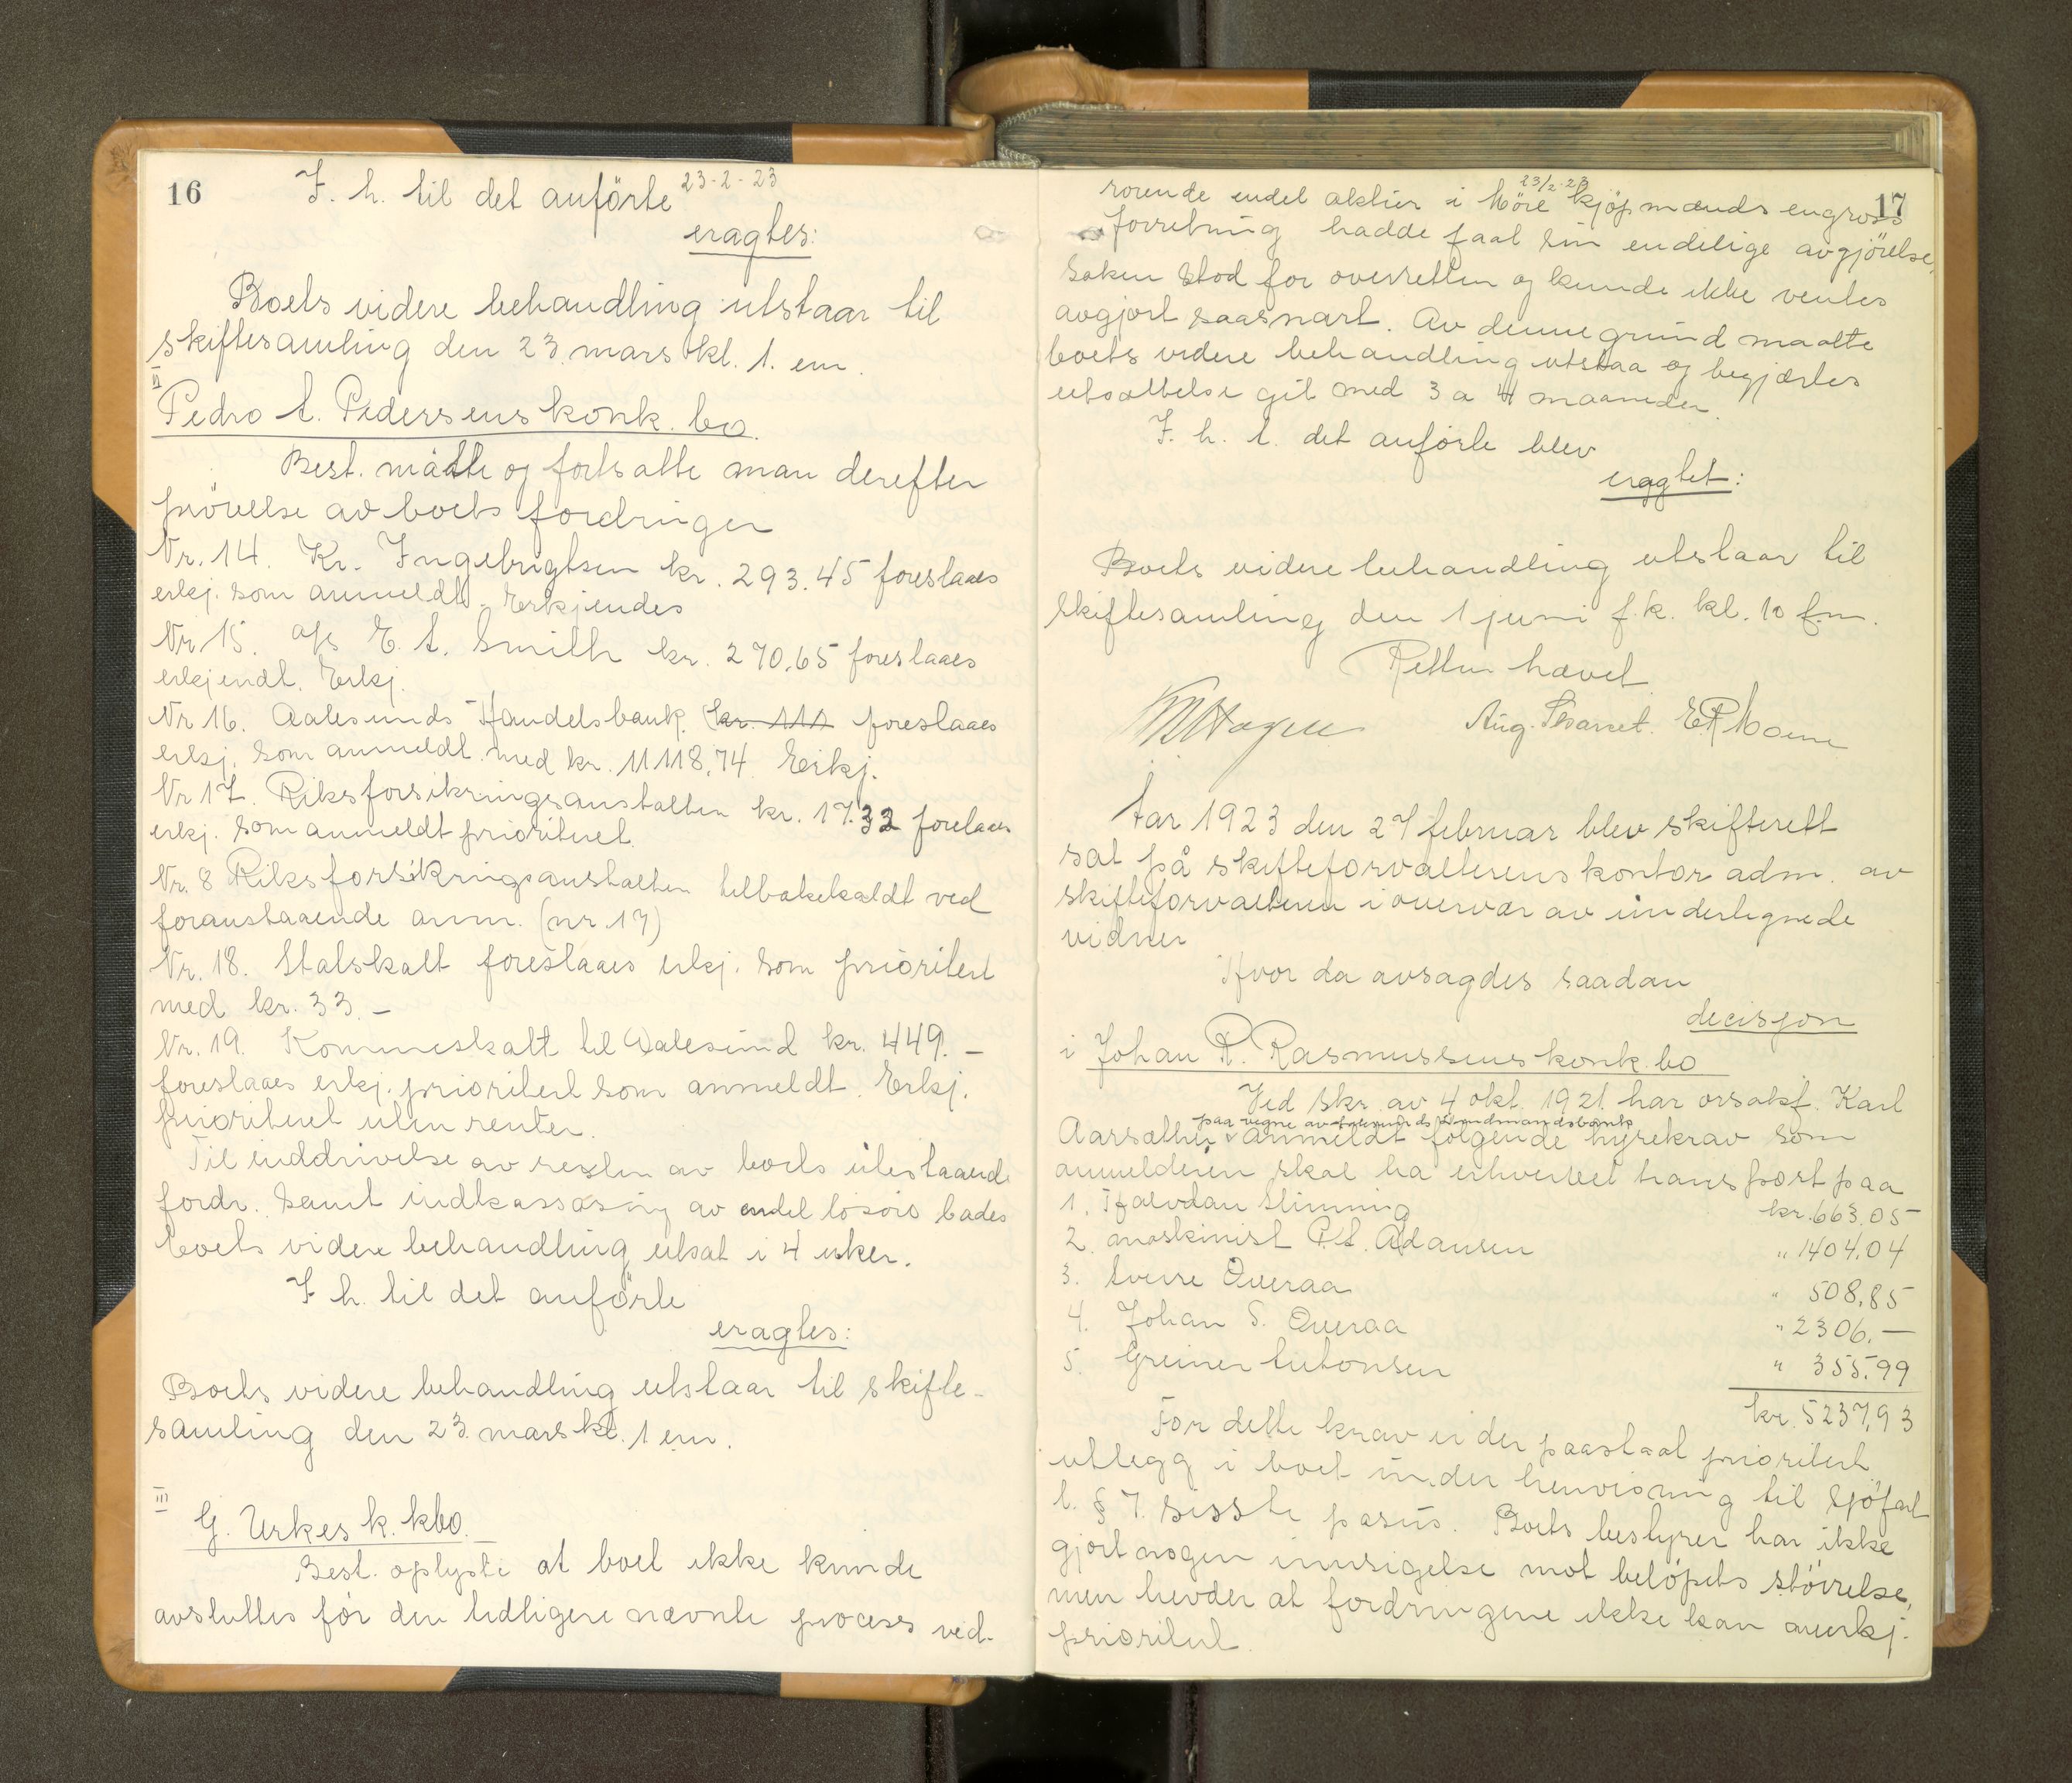 16
F. h. til det anförte 23-2-23
eragtes:
Boets videre behandling utstaar til
skiftesamling den 23. mars kl. 1. em.
II
Pedro A. Pedersens konk. bo.
Best. mödte og fortsatte man derefter
prövelse av boets fordringer
Nr. 14. Kr. Ingebrigtsen kr. 293.45 foreslaaes
erkj. som anmeldt. Erkjendes
Nr 15. A/s E. A. Smith kr. 270,65 foreslaaes
erkjendt. Erkj.
Nr 16. Aalesunds Handelsbank kr. 111 foreslaaes
erkj. som anmeldt med kr. 11118,74 Erkj.
Nr 17. Riksforsikringsanstalten kr. 17.32 forelaaes
erkj. som anmeldt prioritert.
Nr. 8 Riksforsikringsanstalten tilbakekaldt ved
foranstaaende anm. (nr. 17)
Nr. 18. Statskatt foreslaaes erkj. som prioritert
med kr. 33.-
Nr. 19. Kommeskatt til Aalesund kr. 449.-
foreslaaes erkj. prioritert som anmeldt. Erkj.
prioritert uten renter.
Til inddrivelse av resten av boets utestaaende
fordr. samt indkassering av endel lösöre bades
boets videre behandling utsat i 4 uker.
F h. til det anförte
eragtes:
Boets videre behandling utstaar til skifte-
samling den 23. mars kl. 1 em.
III
G. Urkes k. kbo.
Best. oplyste at boet ikke kunde
avsluttes för den tidligere nævnte process ved-
17
23/2-23
rörende endel aktier i Möre kjöpmænds engros
forretning hadde faat sin endelige avgjörelse,
Saken stod for overretten og kunde ikke ventes
avgjort saasnart. Av denne grund maatte
boets videre behandling utstaa og begjærtes
utsættelse git med 3 a 4 maaneder.
F. h. t. det anförte blev
eragtet:
Boets videre behandling utstaar til
skiftesamling den 1 juni f.k. kl. 10 f.m.
Retten hævet
Aug. E R Moene
Aar 1923 den 27 februar blev skifterett
sat på skifteforvalterens kontor adm. av
skifteforvalteren i overvær av undertegnede
vidner
Hvor da avsagdes saadan
decisjon
i Johan R. Rasmussens konk. bo
Ved skr. av 4 okt. 1921. har orsakf. Karl
paa vegne av Aalesunds Landmandsbank
Aarsæther anmeldt fölgende hyrekrav som
anmelderen skal ha erhvervet transport paa
1. Halvdan Slinning kr. 663.05
2. maskinist P.A. Adansen " 1404.04
3. Sverre Overaa " 508,85
4. Johan S. Overaa " 2306.—
5. Greiner Antonsen " 355.99
kr. 5237,93
For dette krav er der paastaat prioritert
utlegg i boet under henvisning til Sjöfart
l. § 7. sisste pasus. Boets bestyrer har ikke
gjort nogen innsigelse mot belöpets störrelse,
men hevder at fordringene ikke kan anerkj.
prioritert.